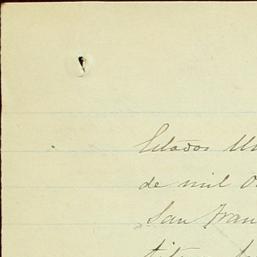 Estados Un
de mil O
San Fran